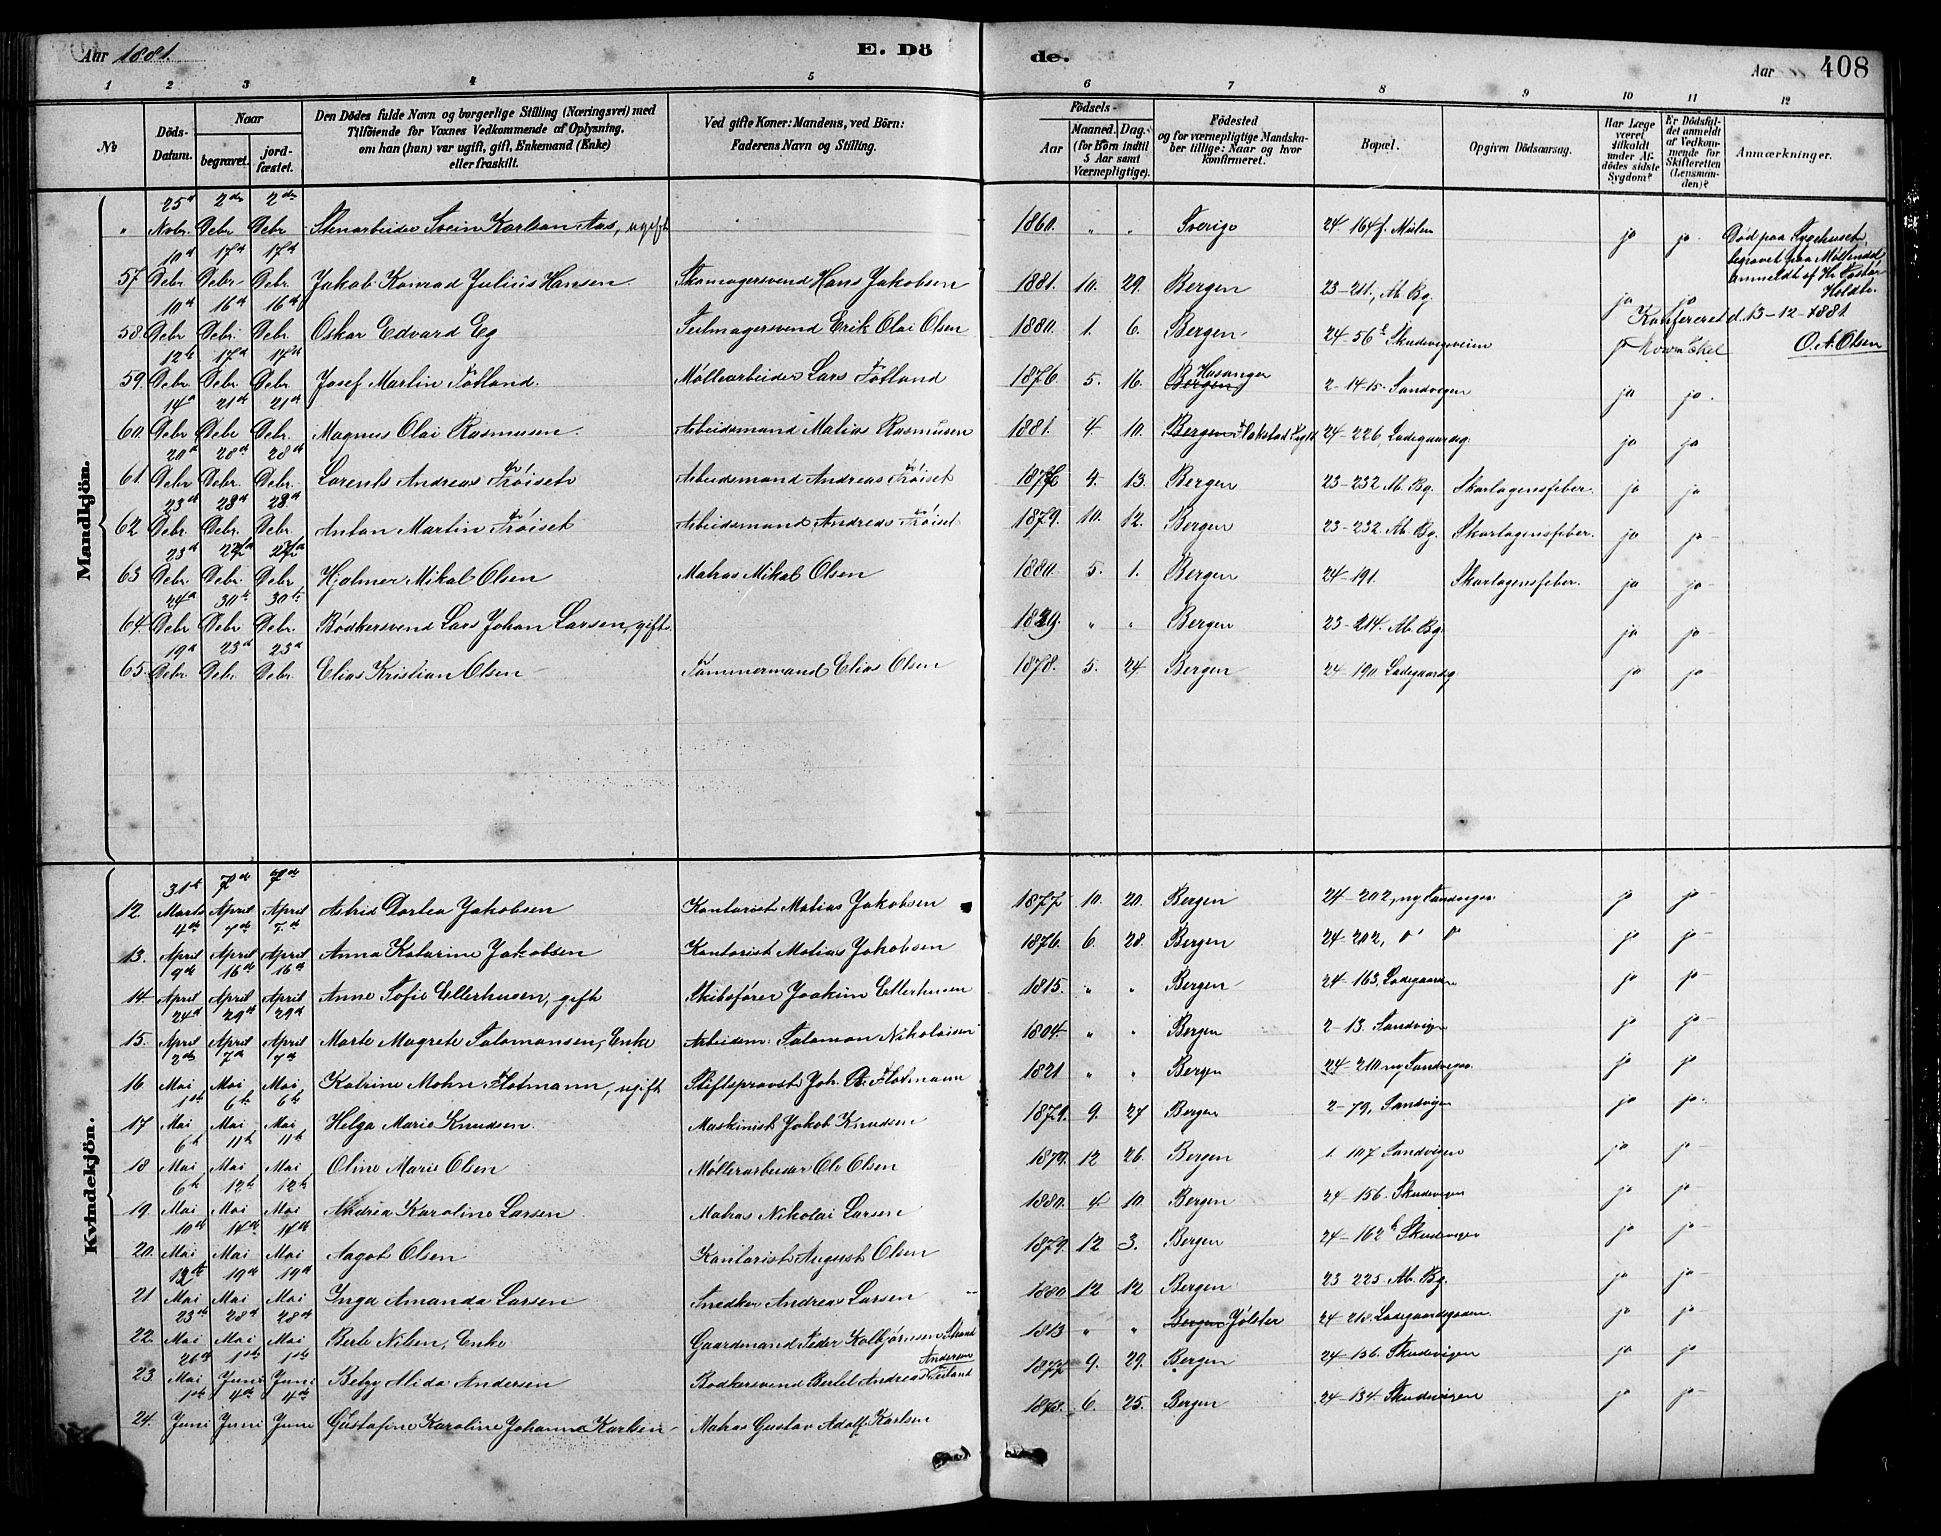 Aar 1881. E. Dö de. Aar 408
1 2 3 4 5 6 7 8 9 10 11 12
№ Döds-Datum. Naar begravet. jordfæstet. Den Dödes fulde Navn og borgerlige Stilling (Næringsvei) med Tilföiende for Voxnes Vedkommende af Oplysning, om han (hun) var ugift, gift, Enkemand (Enke) eller fraskilt. Ved gifte Koner: Mandens, ved Börn: Faderens Navn og Stilling. Födsels- Aar Maaned. Dag. (for Börn indtil 5 Aar samt Værnepligtige). Födested og for værnepligtige Mandskaber tillige: Naar og hvor konfirmeret. Bopæl. Opgiven Dödsaarsag. Har Læge været tilkaldt under Afdödes sidste Sygdom? Er Dödsfaldet anmeldt af Vedkommende for Skifteretten (Lensmanden)? Anmærkninger.
Mandkjön.
" 25d Novbr. 2den Debr 2den Debr Stenarbeider Svein Karlsen Aas, ugift 1860. " " Sverige 24-164f. Mulen ja ja. Död paa Sygehuset, begravet paa Møllendal, anmeldt af Hr. Pastor Holdt.
57. 10d Debr 17d Debr 17d Debr. Jakob Konrad Julius Hansen. Skomagersvend Hans Jakobsen 1881. 10. 29. Bergen 23-211, Ab. Bg. ja ja
Konfereret d. 13-12-1881
58. 10d Debr 16d Debr. 16d Debr Oskar Edvard Eg Seilmagersvend Erik Olai Olsen 1880. 1. 6. Bergen 24-56 Skudevigsveien ja O. A. Olsen
59. 12te Debr. 17d Debr. 17d Debr. Josef Martin Totland. Møllearbeider Lars Totland 1876. 5. 16. Bergen Hosanger 2-14-15. Sandvigen ja ja.
60. 14d Debr 21d Debr 21d Debr. Magnus Olai Rasmusen. Arbeidsmand Matias Rasmusen 1881. 4. 10. Bergen 24-226, Ladegaardsg. ja ja
61. 20d Debr 28d Debr. 28d Debr. Lorents Andreas Frøiset Arbeidsmand Andreas Frøiset 1876 4. 13. Bergen 23-232 Ab. Bg. Skarlagensfeber. ja ja
62 23d Debr. 28d Debr. 28d Debr. Anton Martin Frøiset Arbeidsmand Andreas Frøiset 1879. 10. 12. Bergen 23-232. Ab. Bg. Skarlagensfeber. ja ja
63 23d Debr. 27d Debr. 27d Debr Hjalmer Mikal Olsen Matros Mikal Olsen 1880. 5. 1. Bergen 24-191. Skarlagensfeber. ja ja
64. 24d Debr 30te Debr 30te Debr. Bödkersvend Lars Johan Larsen, gift. 1829. " " Bergen 23-214. Ab. Bg. ja ja
65. 19d Debr. 23d Debr. 23d Debr. Elias Kristian Olsen Tømmermand Elias Olsen 1878. 5. 24 Bergen 24-190 Ladegaardsg ja ja
Kvindekjön.
12. 31te Marts 7de April 7de April Astrid Dortea Jakobsen Kontorist Matias Jakobsen 1877 10. 20. Bergen 24-202, ny Sandvigen ja ja
13. 4de April 7de April 7de April Anna Katarine Jakobsen Kontorist Matias Jakobsen 1876. 6. 28. Bergen 24-202, ja ja
14. 9de April 16de April 16de April Anne Sofie Ellerhusen, gift Skibsfører Joakim Ellerhusen 1815. " " Bergen 24-163. Ladegaarden ja ja
15. 24d April 29de April 29d April Marte Magrete Salomonsen, Enke Arbeidsm. Salomon Nikolaisen 1804. " " Bergen 2-13. Sandvigen ja ja
16. 2de Mai 7de Mai 7de Mai Katrine Mohn Flotmann, ugift Stiftsprovst Joh. B. Flotmann 1821 " " Bergen 24-210 ny Sandvigen. ja ja
17 1ste Mai 6te Mai 6te Mai Helga Marie Knudsen. Maskinist Jakob Knudsen 1879. 9. 27 Bergen 2-79, Sandvigen ja ja.
18 6te Mai 11te Mai 11te Mai Oline Marie Olsen Møllerarbeider Ole Olsen 1879. 12 26. Bergen 1-107 Sandvigen ja ja
19. 6te Mai 12te Mai 12te Mai Andrea Karoline Larsen Matros Nikolai Larsen 1880. 4. 10. Bergen 24-156. Skudevigen ja ja
20. 10de Mai 14de Mai 14de Mai Aagot Olsen Kontorist August Olsen 1879. 12 3. Bergen 24-162b Skudevigen ja ja
21 12te Mai 19de Mai 19de Mai Inga Amanda Larsen Snedker Andreas Larsen 1880 12 12 Bergen 23 225. Ab. Bg. ja ja
22. 23de Mai 28d Mai 28d Mai Berte Nilsen, Enke Gaardmand Peder Kolbjørnsen Strand 1813 " " Bergen Jölster 24-218. Ladegaardsgaden. ja ja
23. 26d Mai 1ste Juni 1ste Juni Betzy Alida Andersen Bødkersvend Bertel Andreas Andersen 1877 9. 29. Bergen 24-136. Skudevigen ja ja
24. 1ste Juni 4de Juni 4de Juni Gustafine Karoline Johanne Karlsen Matros Gustav Adolf Karlsen 1878. 6. 25. Bergen 24-134. Skudevigen ja ja